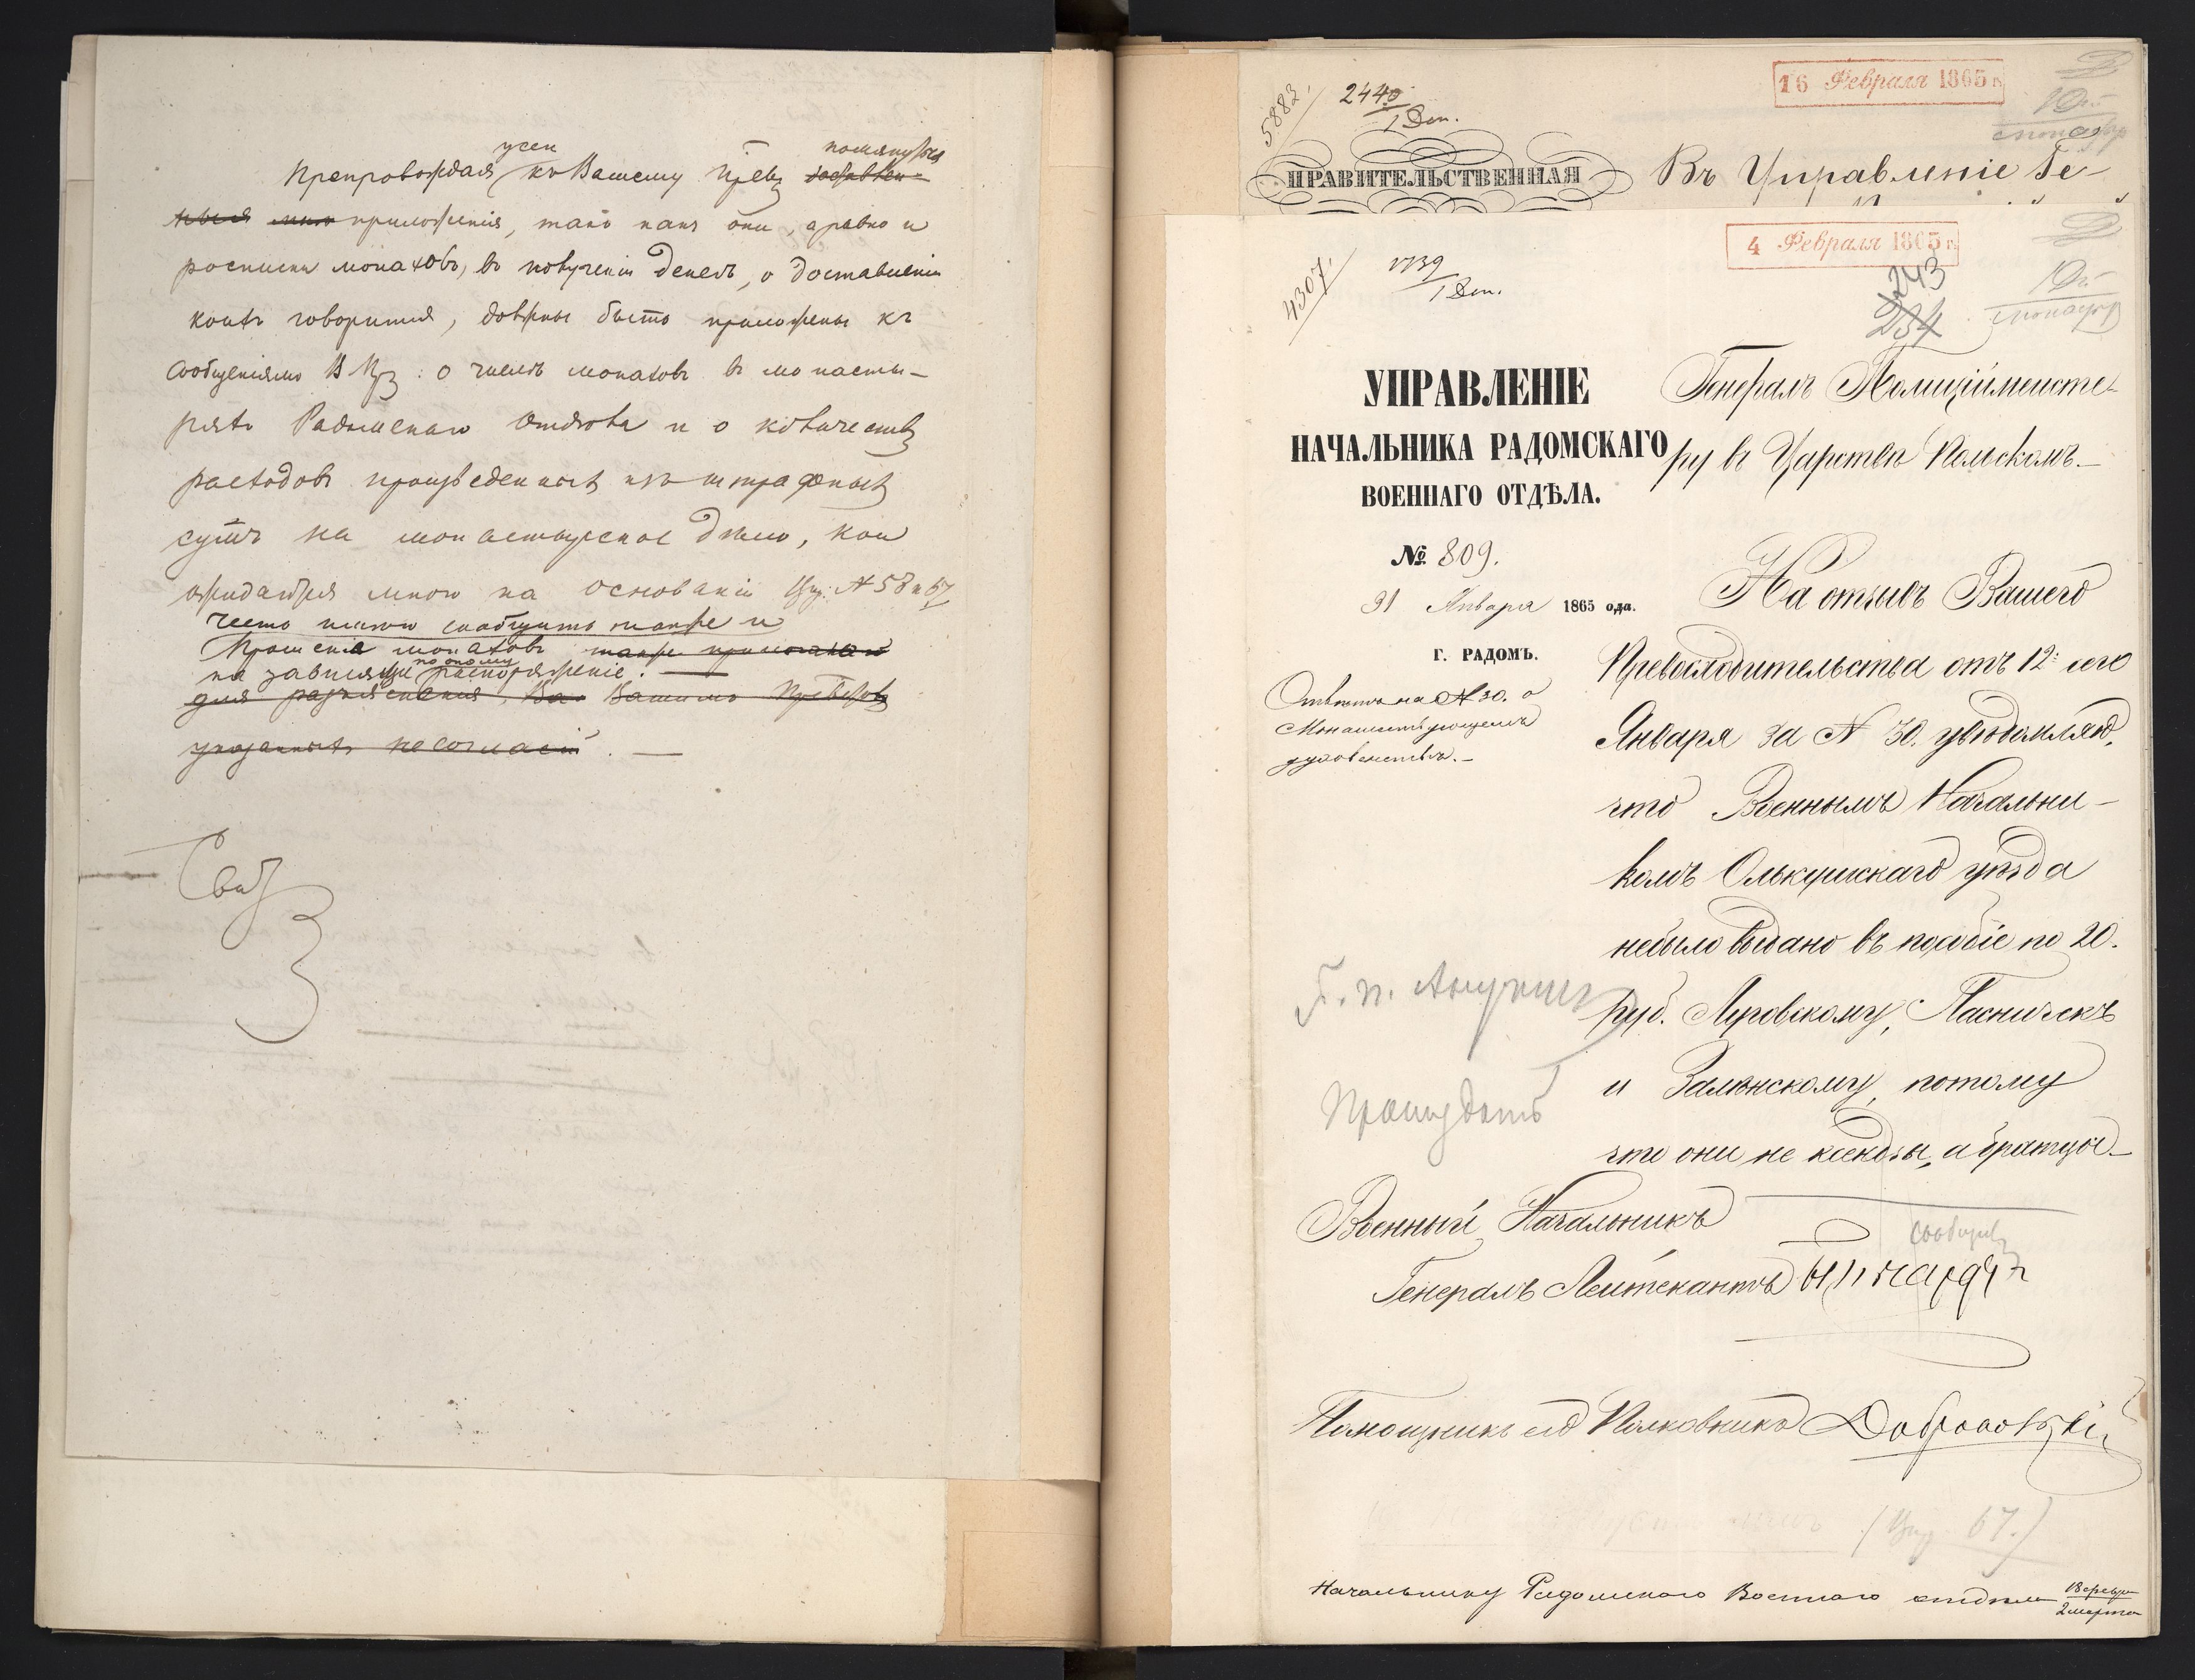 усем помянутыя
Препровождая къ Вашему Прев доставлен-
ныя мною приложенія, такъ какъ они, а равно и
росписки монаховъ, въ полученіи денегъ, о доставленіи
коихъ говорится, должны быть приложены къ
сообщеніямъ о числѣ монаховъ въ монасты-
ряхъ Радомскаго Отдѣла и о количествѣ
расходовъ произведенныхъ изъ штрафныхъ
суммъ на монастырское дѣло, кои
ожидаются мною на основаніи № 58 и 67
честь имѣю сообщить также и
Прошенія монаховъ также
по оному
на зависящее распоряженіе. —
для разъясненія Ва Вашимъ Превосх
указанныхъ несогласій. —
16 Февраля 1865 г.
5883.
2440
1 Деп.
10й
ПРАВИТЕЛЬСТВЕННАЯ
Въ Управленіе Ге-
4 Февраля 1865 г.
4307.
1739
1 Деп.
243
234
10й
УПРАВЛЕНІЕ
НАЧАЛЬНИКА РАДОМСКАГО
ВОЕННАГО ОТДѢЛА.
№ 809.
31 Января 1865 ода.
Г. РАДОМЪ.
Отвѣтъ на № 30. о
Монашествующемъ
духовенствѣ. —
Генералъ Полиціймейсте-
ру въ Царствѣ Польскомъ. —
На отзывъ Вашего
Превосходительства отъ 12: сего
Января за № 30. увѣдомляю,
что Военнымъ Начальни-
комъ Олькушскаго уѣзда
небыло выдано въ пособіе по 20.
руб. Луровскому, Пасничекъ
и Залѣнскому, потому
что они не ксендзы, а братцы. —
Г. п.
Военный Начальникъ
Генералъ Лейтенантъ
Помощникъ его Полковникъ Добровольскій
67.)
Начальнику Радомскаго Военнаго отдѣла 18 февр
2 марта